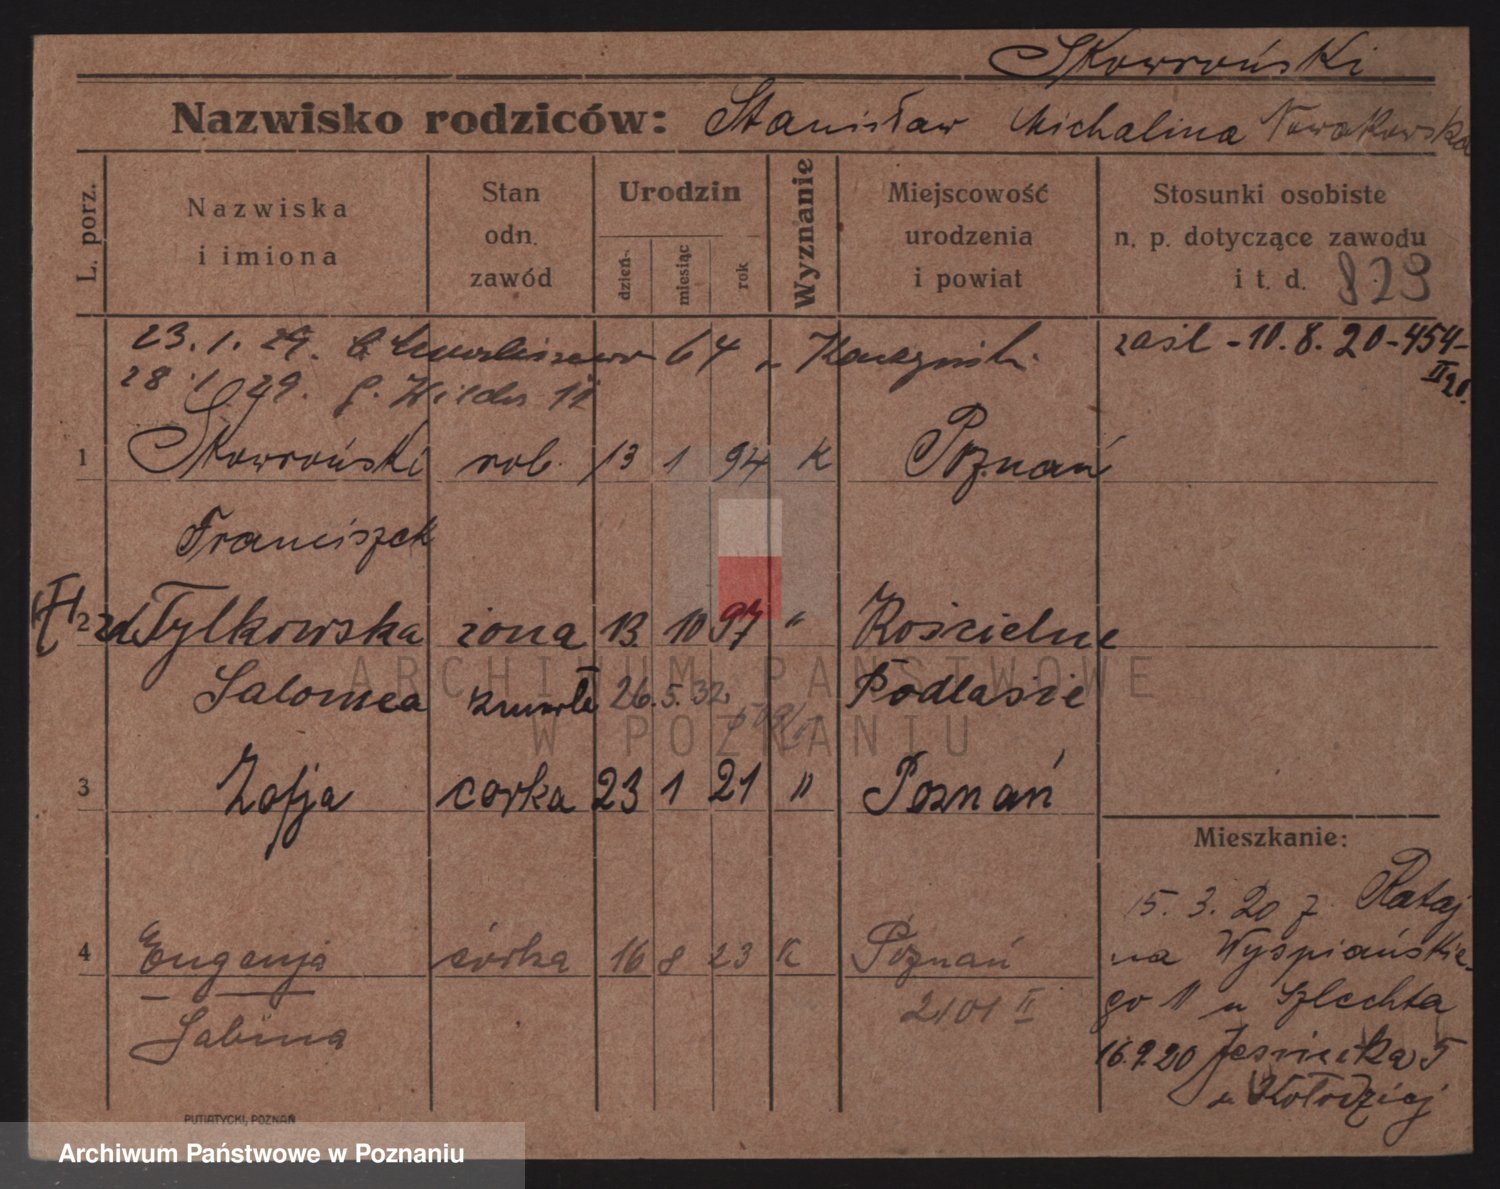 Skowroński
Nazwisko rodziców: Stanisław Michalina Nowakowska
L. porz.
Nazwiska
i imiona
Stan
odn.
zawód
Urodzin
dzień
miesiąc
rok
Wyznanie
Miejscowość
urodzenia
i powiat
Stosunki osobiste
n. p. dotyczące zawodu
i t. d. 829
23. 1. 29. 64 u
zaśl - 10. 8. 20 - 454 -
II 20.
28 1 29. G. Wilda 11
1 Skowroński rob. 13 1 94 K Poznań
Franciszek
2 zd Tylkowska żona 13. 10 97 " Kościelne
Salomea zmarła 26. 5. 32. Podlasie
3 Zofja córka 23 1 21 " Poznań
Mieszkanie:
15. 3. 20 z Rataj
4 Eugenja córka 16 8 23 K Poznań
na Wyspiańskie-
2101 II
go 11 u Szlechta
Sabina
16.9.20 Jesnicka 5
u Kołodziej
PUTIATYCKI, POZNAŃ
ARCHIWUM PAŃSTWOWE
W POZNANIU
Archiwum Państwowe w Poznaniu